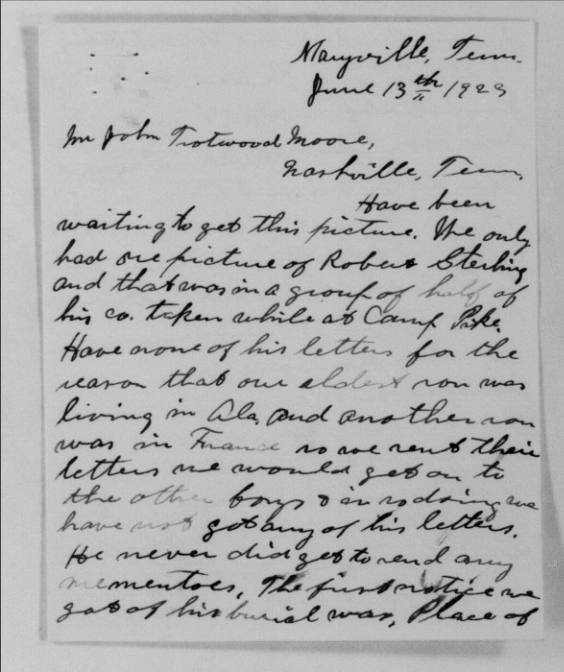 Maryville, Tenn.
June 13th 1923
Mr John Trotwood Moore,
Nashville, Tenn.
Have been
waiting to get this picture. We only
had one picture of Robert Sterling
and that was in a group of half of
his co. taken while at Camp Pike.
Have none of his letters for the
reason that our eldest son was
living in Ala, and another son
was in France so we sent their
letters we would get on to
the other boys & in so doing we
have not got any of his letters.
He never did get to send any
mementoes, The first notice we
got of his burial was, Place of